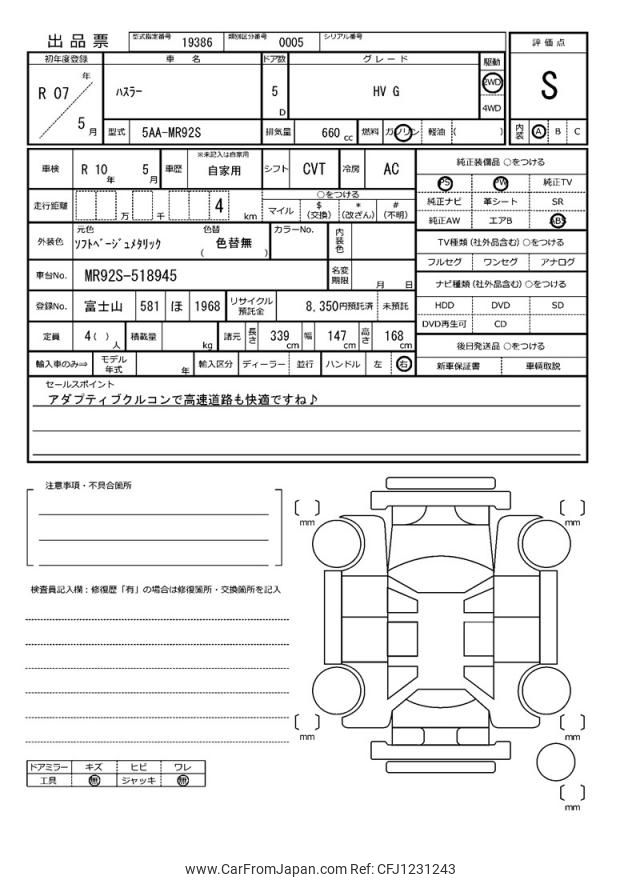 出品票
型式指定番号 19386 類別区分番号 0005 シリアル番号
評価点
S
内装 A B C
初年度登録 車名 ドア数 グレード 駆動
R 07 年 5 月
ハスラー
5 D
HV G
2WD
4WD
型式 5AA-MR92S 排気量 660 cc 燃料 ガソリン 軽油 ( )
車検 R 10 年 5 月 車歴 ※未記入は自家用 自家用 シフト CVT 冷房 AC
走行距離 万 千 4 km
○をつける
マイル $(交換) *(改ざん) #(不明)
外装色 元色 ソフトベージュメタリック 色替 ( 色替無 ) カラーNo. 内装色
車台No. MR92S-518945 名変期限 月 日
登録No. 富士山 581 ほ 1968 リサイクル預託金 8,350円預託済 未預託
定員 4( ) 人 積載量 kg 諸元 長さ 339 cm 幅 147 cm 高さ 168 cm
輸入車のみ⇒ モデル年式 年 輸入区分 ディーラー 並行 ハンドル 左 右
純正装備品 ○をつける
PS PW 純正TV
純正ナビ 革シート SR
純正AW エアB ABS
TV種類 (社外品含む) ○をつける
フルセグ ワンセグ アナログ
ナビ種類 (社外品含む) ○をつける
HDD DVD SD
DVD再生可 CD
後日発送品 ○をつける
新車保証書 車輌取説
セールスポイント
アダプティブクルコンで高速道路も快適ですね♪
注意事項・不具合箇所
検査員記入欄：修復歴「有」の場合は修復箇所・交換箇所を記入
ドアミラー キズ ヒビ ワレ
工具 無 ジャッキ 無
mm
mm
mm
mm
mm
www.CarFromJapan.com Ref: CFJ1231243